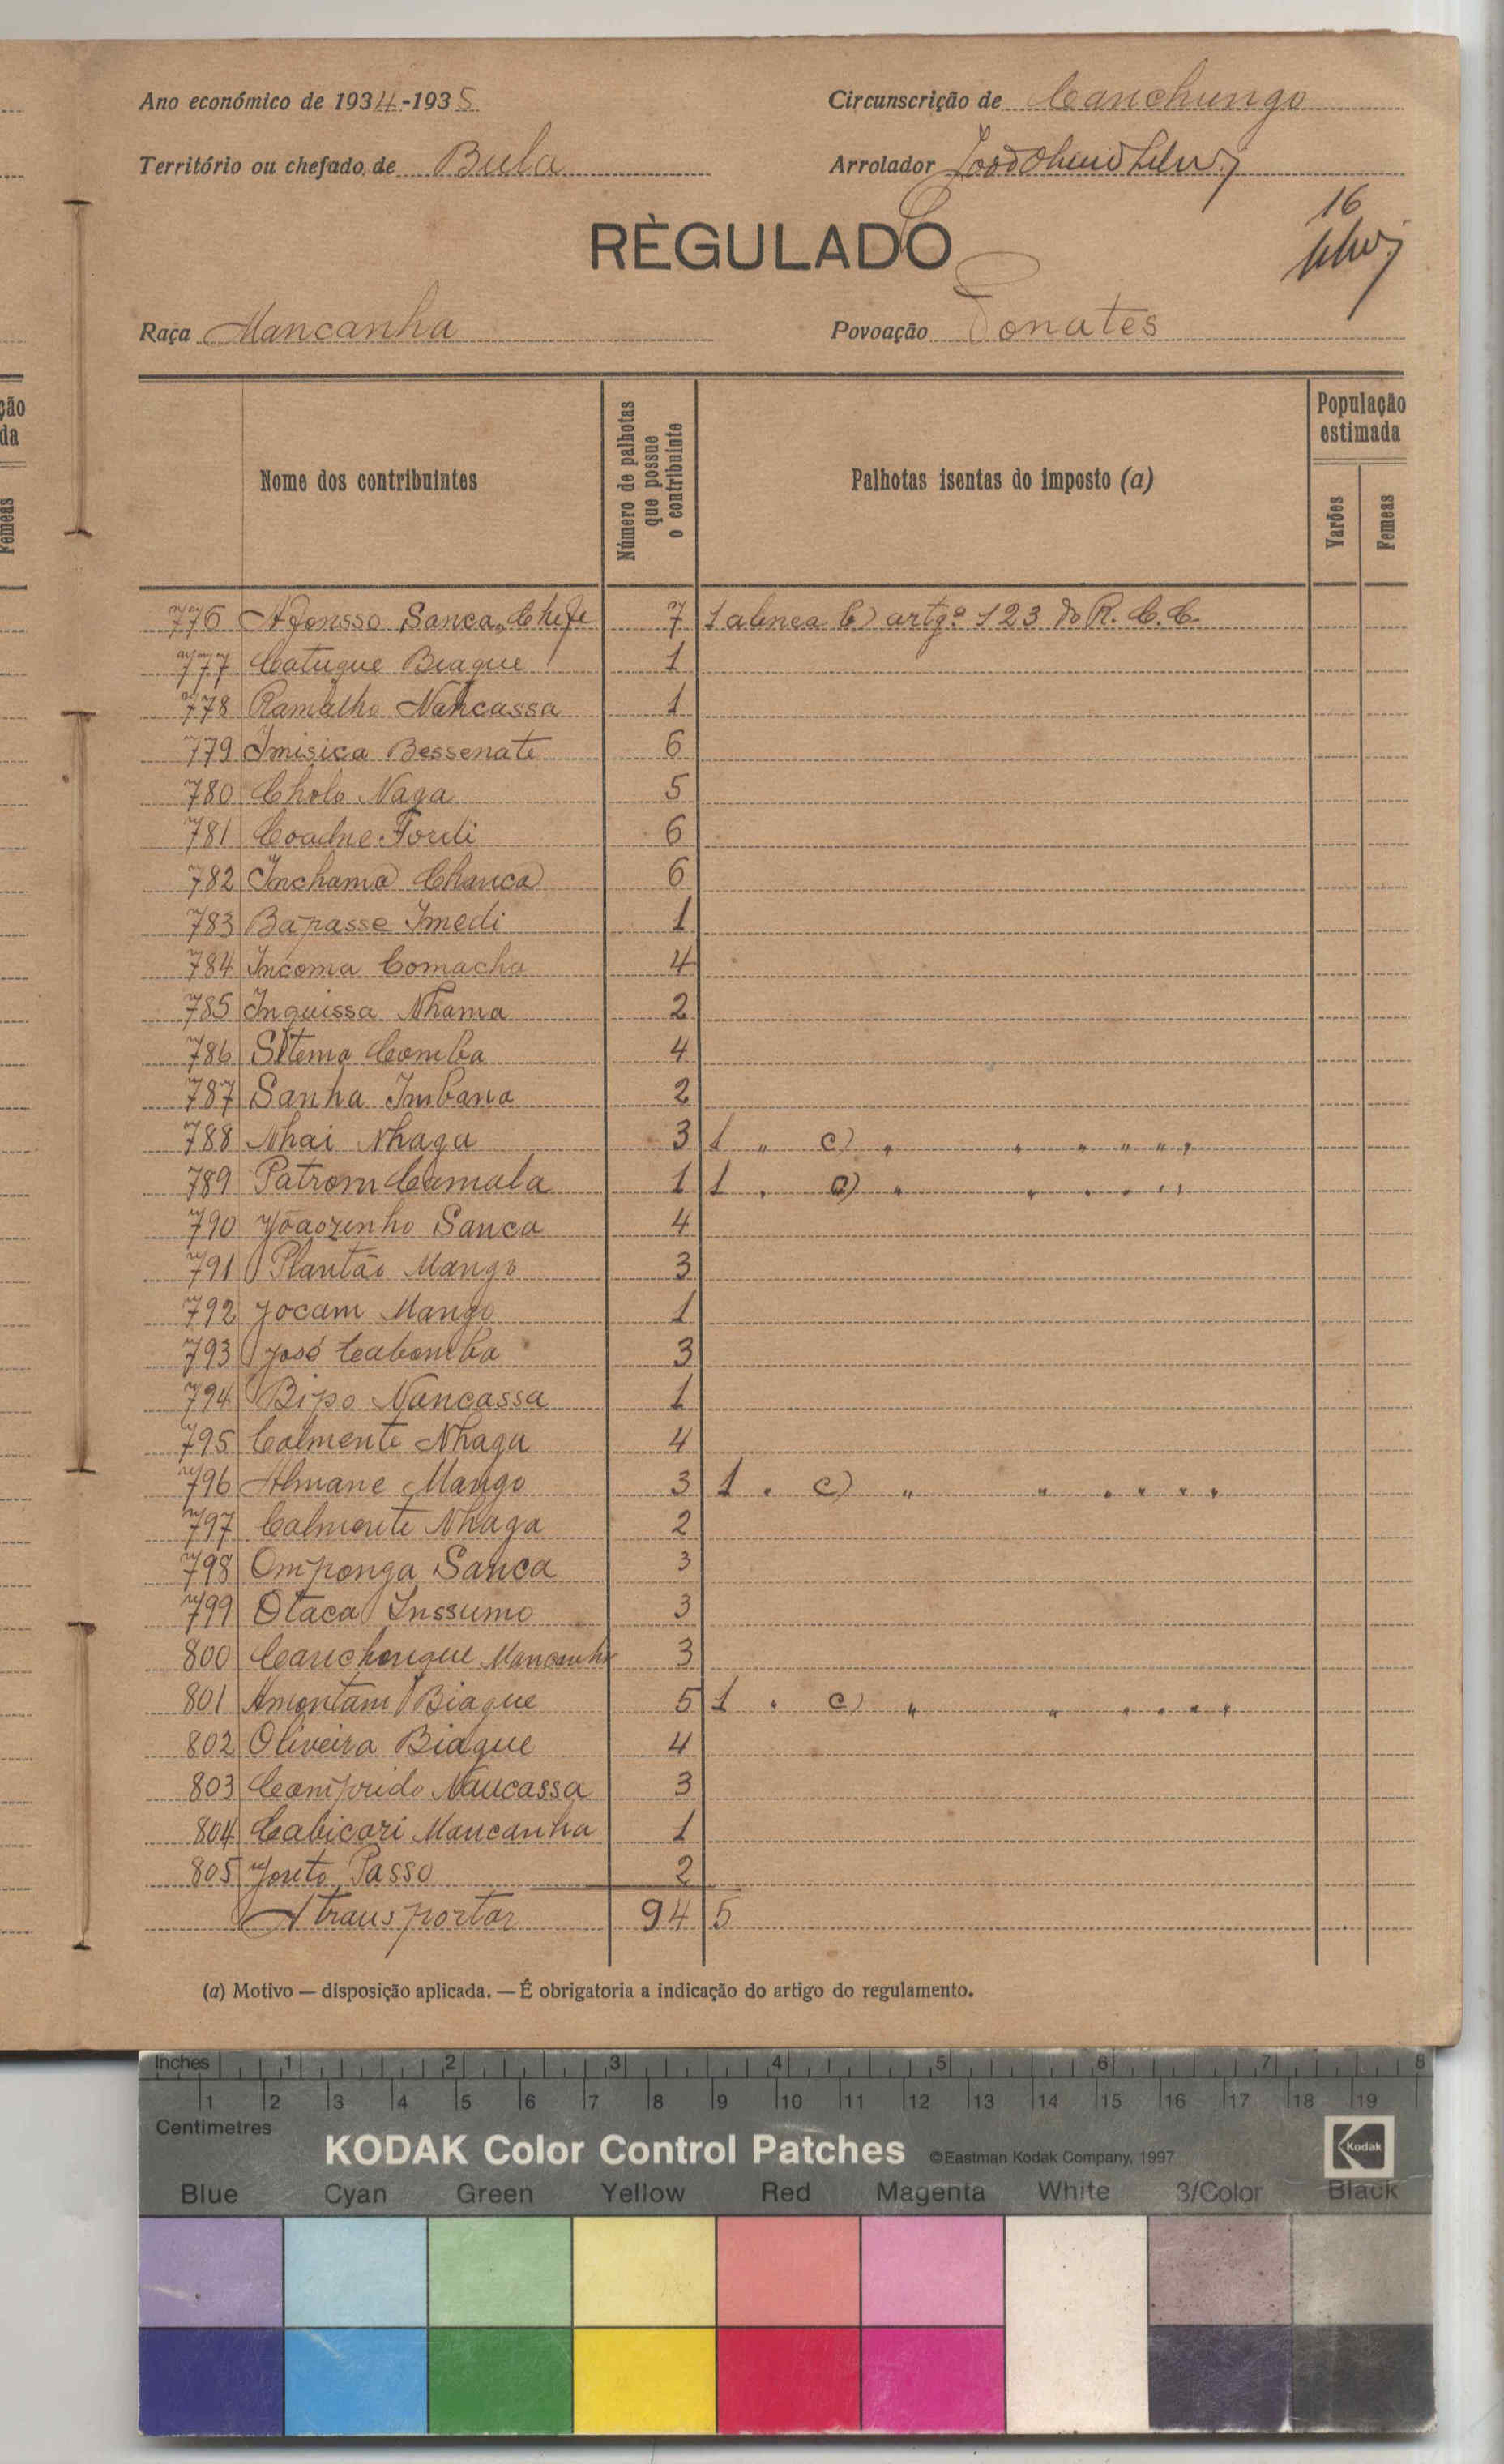 Ano económico de 1934-1935
Circunscrição de Canchungo
Território ou chefado de Bula
Arrolador
16
RÈGULADO
Raça Mancanha
Povoação Ponates
Nome dos contribuintes
Número de palhotas que possue o contribuinte
Palhotas isentas do imposto (a)
População estimada
Varões
Femeas
776 Afonsso Sanca, Chefe 7 1 alinea b) artgº 123 do R. C. C.
777 Catuque Biague 1
778 Ramalho Nancassa 1
779 Imisica Bessenate 6
780 Cholo Naga 5
781 Coadne Fordi 6
782 Inchama Chanca 6
783 Bapasse Imedi 1
784 Incoma Comacha 4
785 Inquissa Nhama 2
786 Sitema Comba 4
787 Sanha Imbana 2
788 Nhai Nhaga 3 1 " c) " " " " " "
789 Patrom Camala 1 1 " a) " " " " " "
790 Jõaozinho Sanca 4
791 Plantão Mango 3
792 Jocam Mango 1
793 José Cabomba 3
794 Bipo Nancassa 1
795 Calmente Nhaga 4
796 Almane Mango 3 1 " c) " " " " " "
797 Calmente Nhaga 2
798 Omponga Sanca 3
799 Otaca Inssumo 3
800 Canchongue Mancanha 3
801 Amontam Biague 5 1 " c) " " " " " "
802 Oliveira Biague 4
803 Comprido Nancassa 3
804 Cabicari Mancanha 1
805 Joneto Passo 2
A transportar 94 5
(a) Motivo — disposição aplicada. — É obrigatoria a indicação do artigo do regulamento.
ção
da
Femeas
Inches 1 2 3 4 5 6 7 8
1 2 3 4 5 6 7 8 9 10 11 12 13 14 15 16 17 18 19
Centimetres
KODAK Color Control Patches ©Eastman Kodak Company, 1997
Kodak
Blue Cyan Green Yellow Red Magenta White 3/Color Black